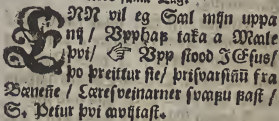 ENN vil eg Sæl mijn uppa
ny / Upphaf taka a Mæle
þvi / ☞ Upp stood JEsus /
þo þreittur sie / þrisvarsinū fra
Bænene / Læresveinarner svæfu fast /
S. Petur þvi avijtast.